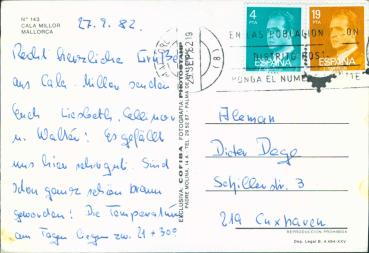 Nº 143
CALA MILLOR
MALLORCA
27.8.82.
Recht herzliche Grüße
aus Cala Millor senden
Euch Liesbeth,
u. Walter! Es gefällt
uns hier sehr gut. Sind
schon ganz schön braun
geworden! Die Temperaturen
am Tage liegen zw. 21 + 30°
EXCLUSIVA COFIBA FOTOGRAFIA
PADRE MOLINA, 14 A - TEL. 29 52 87 - PALMA DE
SEP. 82 19
(81)
EN LAS POBLACION CON
DISTRITO POST
PONGA EL NUME
4
PTA
ESPAÑA
19
PTA
ESPAÑA
Aleman
Dieter Dege
Schillerstr. 3
219 Cuxhaven
REPRODUCCION PROHIBIDA
Dep. Legal B. 4.494-XXV